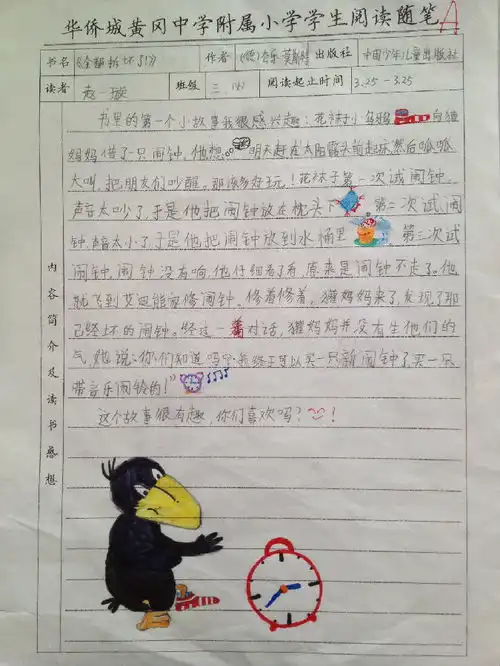 华侨城黄冈中学附属小学学生阅读随笔 A
书名 《全都拆坏了!》 作者 (德)奈乐·莫斯特 出版社 中国少年儿童出版社
读者 赵一璇 班级 三.(4) 阅读起止时间 3.25-3.25
内容简介及读书感想
书里的第一个小故事我很感兴趣:花袜子小乌鸦向獾
妈妈借了一只闹钟。他想:明天赶在太阳露头前起床然后呱呱
大叫,把朋友们吵醒。那该多好玩!花袜子第一次试闹钟,
声音太吵了,于是他把闹钟放在枕头下 第二次试闹
钟,声音太小了,于是他把闹钟放到水桶里 第三次试
闹钟,闹钟没有响,他仔细看了看,原来是闹钟不走了。他
就飞到艾迪熊家修闹钟。修着修着,獾妈妈来了,发现了那
已经坏的闹钟。经过一番对话,獾妈妈并没有生他们的
气,她说:"你们知道吗?我终于可以买一只新闹钟了,买一只
带音乐闹铃的!"
这个故事很有趣,你们喜欢吗?!